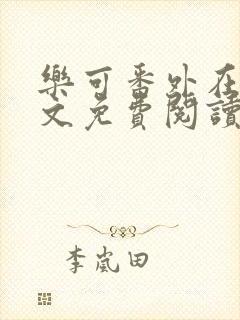 樂可番外在
文免費閱讀
李嵐田